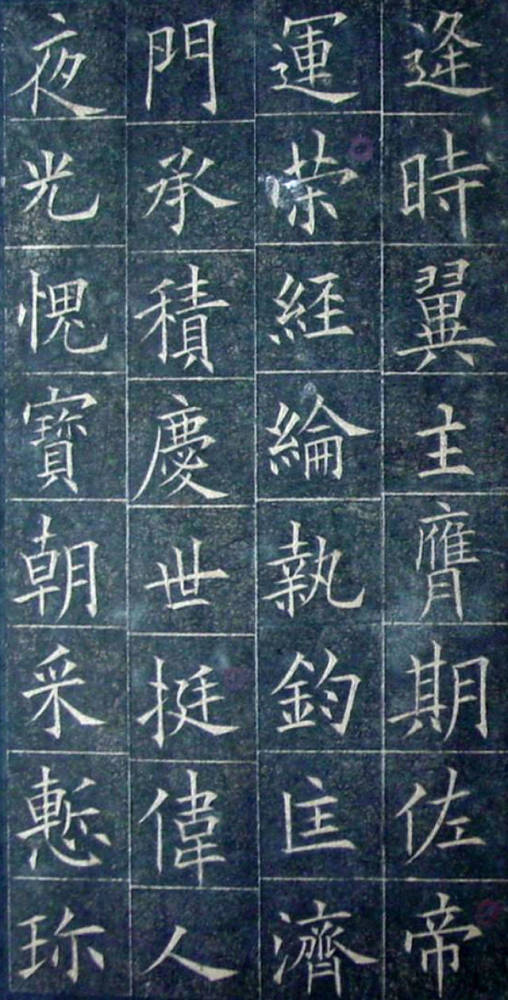 逄時翼主膺期佐帝
運荣經綸執鈞匡濟
門承積慶世挺偉人
夜光愧寶朝采慙珎